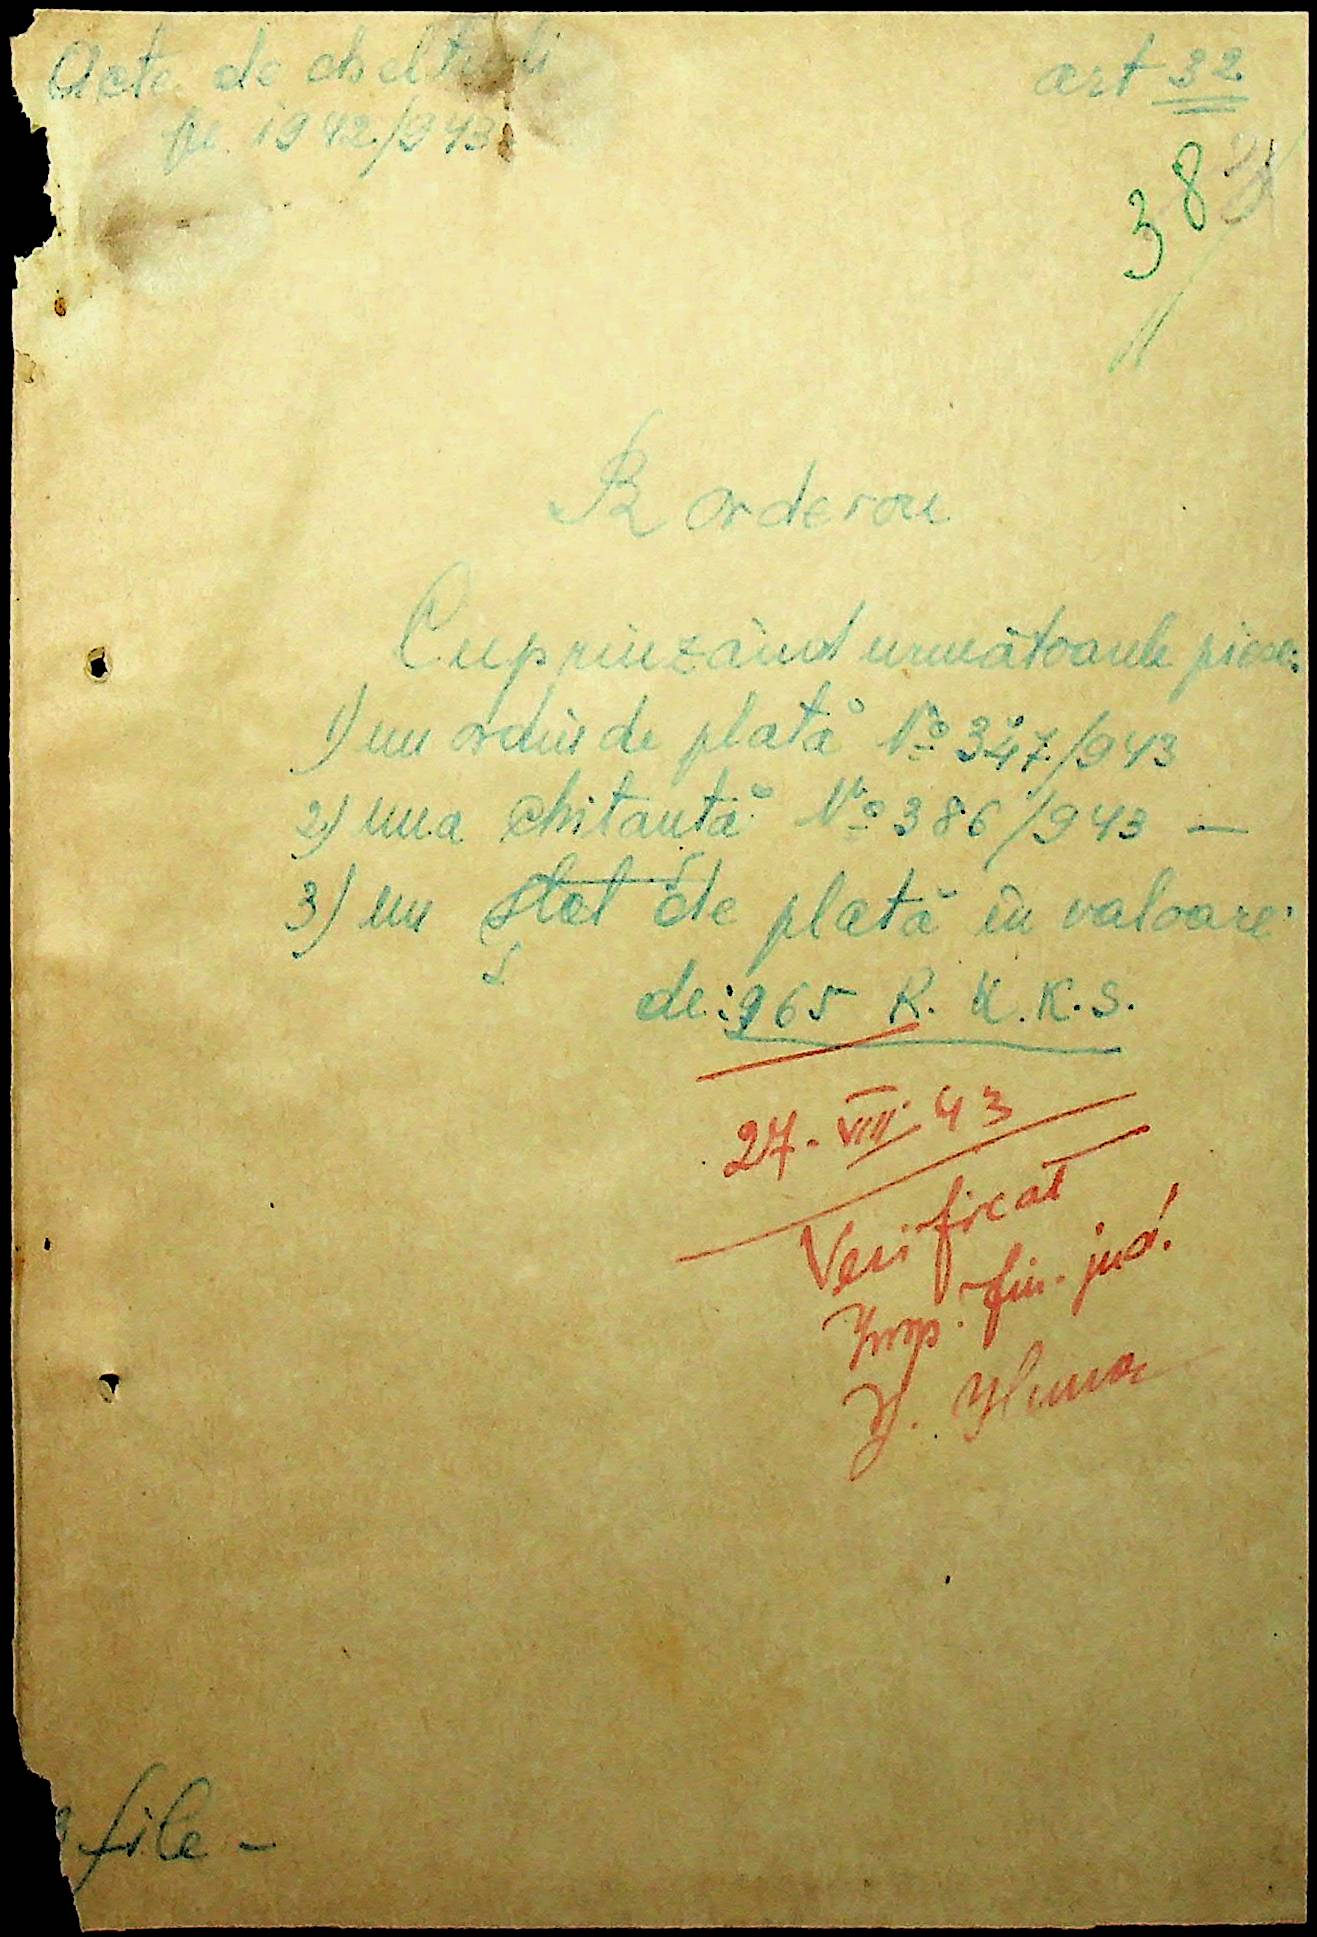 Acte de cheltueli
pe 1942/943
art 32
38
Borderou
Cuprinzând următoarele piese:
1) un ordin de plată No 347/943
2) una chitantă No 386/943 —
3) un stat de plată în valoare
de: 965 R.K.K.S.
27. VIII. 43
Verificat
Insp. fin. jud.
file -